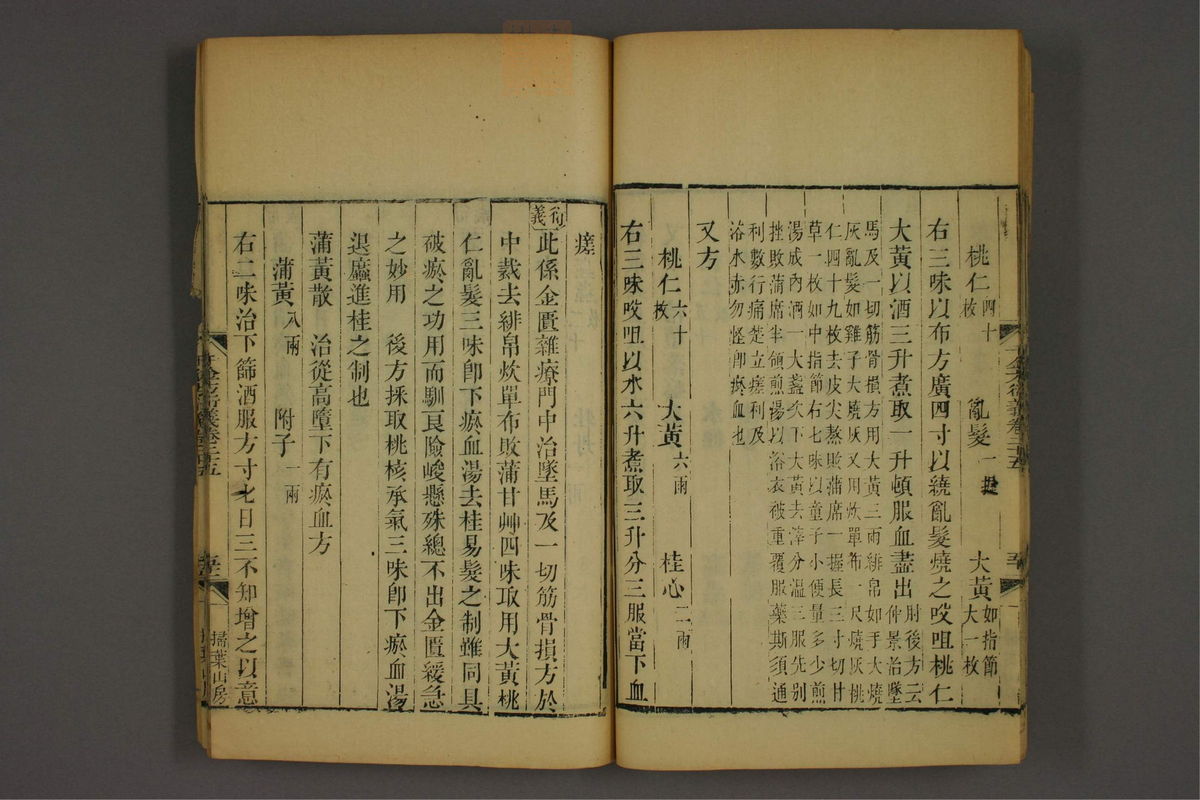 桃仁四十枚 亂髮一握 大黃如指節大一枚
右三味以布方廣四寸以繞亂髮燒之㕮咀桃仁
大黃以酒三升煮取一升頓服血盡出肘後方云仲景治墜
馬及一切筋骨損方用大黃三兩緋帛如手大燒
灰亂髮如雞子大燒灰又用炊單布一尺燒灰桃
仁四十九枚去皮尖熬敗蒲席一握長三寸切甘
草一枚如中指節右七味以童子小便量多少煎
湯成內酒一大盞次下大黃去滓分溫三服先別
挫敗蒲席半領煎湯以浴衣被重覆服藥斯須通
利數行痛楚立瘥利及
浴水赤勿怪卽瘀血也
又方
桃仁六十枚 大黃六兩 桂心二兩
右三味㕮咀以水六升煮取三升分三服當下血
瘥
衍義此係金匱雜療門中治墜馬及一切筋骨損方於
中裁去緋帛炊單布敗蒲甘艸四味取用大黃桃
仁亂髮三味卽下瘀血湯去桂易髮之制雖同具
破瘀之功用而馴良險峻懸殊總不出金匱緩急
之妙用 後方採取桃核承氣三味卽下瘀血湯
退䗪進桂之制也
蒲黃散 治從高墮下有瘀血方
蒲黃八兩 附子一兩
右二味治下篩酒服方寸匕日三不知增之以意
掃葉山房